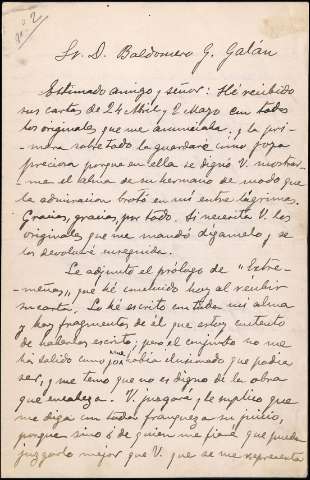 nº 2
Sr. D. Baldomero G. Galán
Estimado amigo y señor: Hé recibido
sus cartas de 24 Abril y 2 Mayo con todos
los originales que me anunciaba, y la pri-
mera sobre todo la guardaré como joya
preciosa porque en ella se dignó V. mostrar-
me el alma de su hermano de modo que
la admiracion brotó en mí entre lágrimas.
Gracias, gracias, por todo. Si necesita V. los
originales que me mandó dígamelo y se
los devolveré enseguida.
Le adjunto el prólogo de "Extre-
meñas", que hé concluido hoy al recibir
su carta. Lo hé escrito con toda mi alma
y hay fragmentos de él que estoy contento
de haberlos escrito; pero el conjunto no me
ha salido como me había ilusionado que podria
ser, y me temo que no es digno de la obra
que encabeza. V. juzgará, y le suplico que
me diga con toda franqueza su juicio,
porque sino ¿de quien me fiaré que pueda
juzgarlo mejor que V. que se me representa